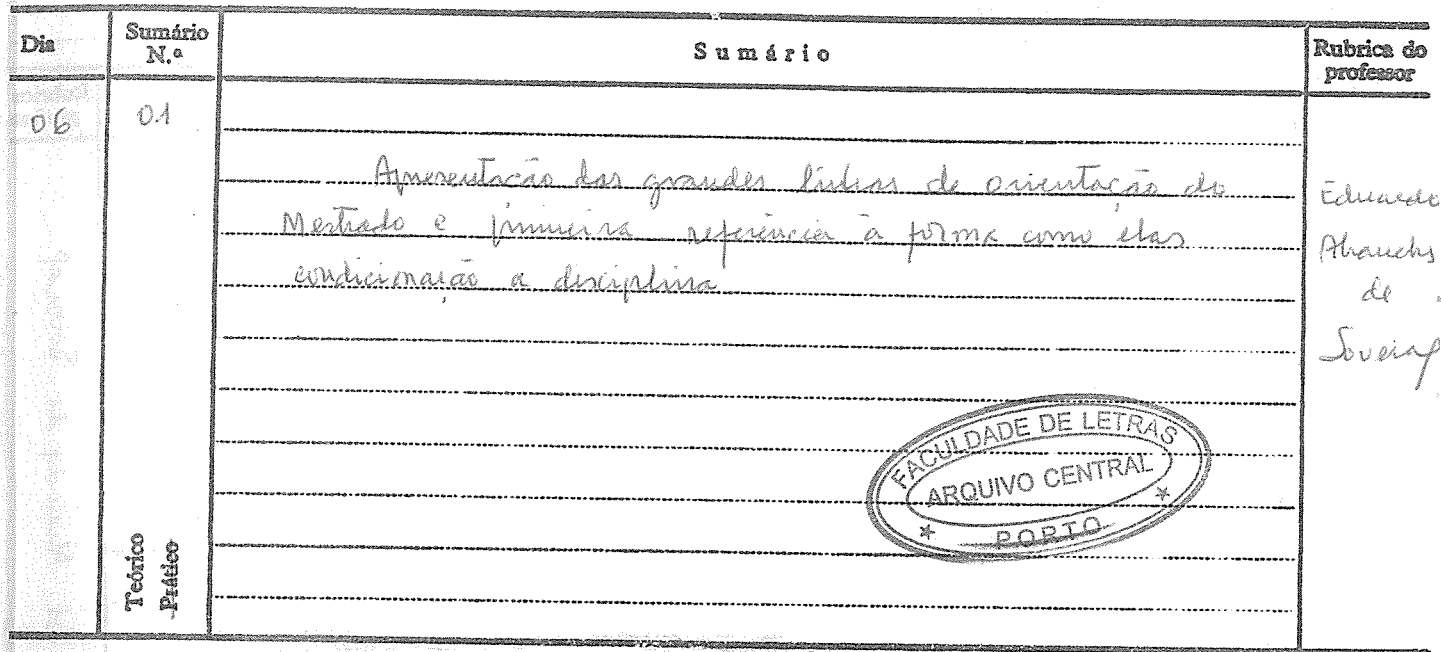 Dia
Sumário N.º
Sumário
Rubrica do professor
06
01
Apresentação das grandes linhas de orientação do
Mestrado e primeira referência à forma como elas
condicionarão a disciplina
Eduardo
Abranches
de
Soveral
FACULDADE DE LETRAS
ARQUIVO CENTRAL
PORTO
Teórico
Prático